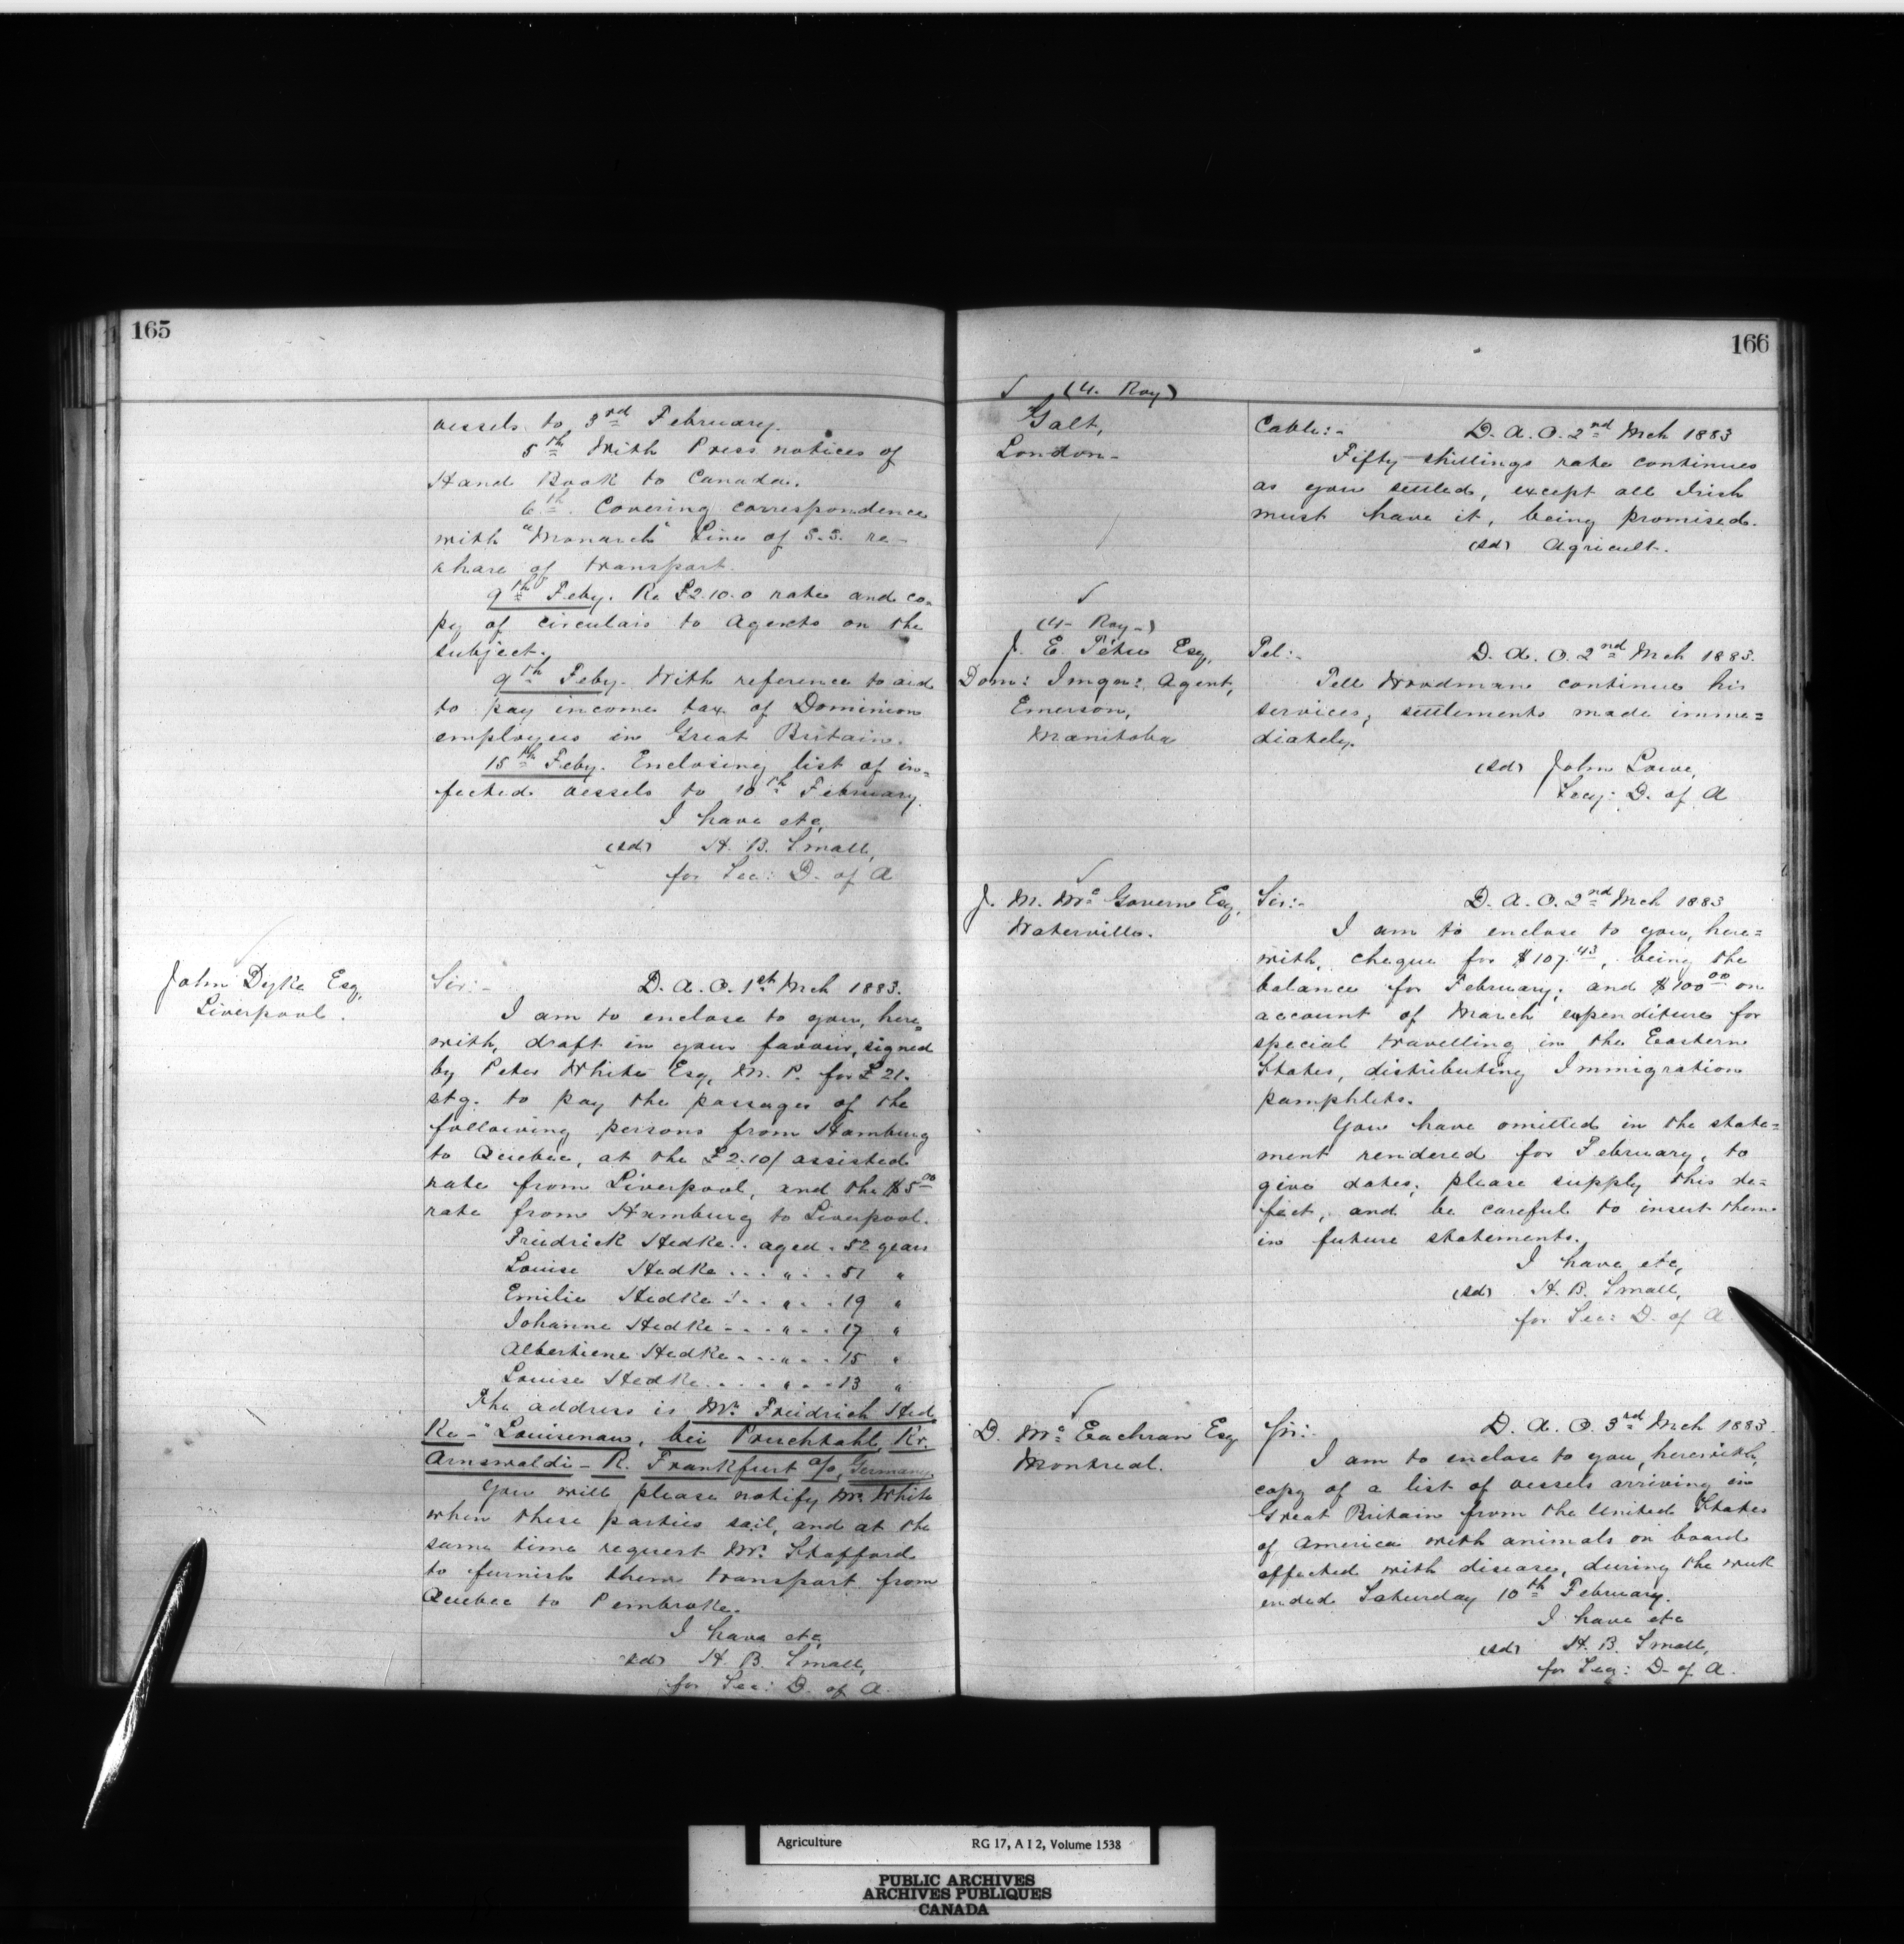 165
vessels to 3rd February.
5th With Press notices of
Hand Book to Canada.
6th. Covering correspondence
with "Monarch" Line of S.S. re-
share of transport.
9th Feby. Re £2.10.0 rate and co=
py of circulars to Agents on the
subject.
9th Feby. With reference to
to pay income tax of Dominion
employees in Great Britain.
15th Feby. Enclosing list of in=
fected vessels to 10th February.
I have etc,
(sd) H. B. Small,
for Sec: D. of A
John Dyke Esq,
Liverpool.
Sir:- D. A. O. 1st Mch 1883.
I am to enclose to you, here=
with, draft in your favour, signed
by Peter White Esq, M. P. for £21.
stg. to pay the passages of the
following persons from Hamburg
to Quebec, at the £2.10/ assisted
rate from Liverpool, and the $5.00
rate from Hamburg to Liverpool.
Friedrick Hedke.. aged. 52 years
Louise Hedke... " .. 51 "
Emilie Hedke... " .. 19 "
Johanne Hedke... " .. 17 "
Albertiene Hedke... " .. 15 "
Louise Hedke.... " .. 13 "
The address is Mr. Friedrich Hed
Ke - "Louisenau, bei Pruchtahl, Kr.
Arnswaldi - R. Frankfurt a/o, Germany.
You will please notify Mr. White
when these parties sail, and at the
same time request Mr. Stafford
to furnish them transport from
Quebec to Pembroke.
I have etc,
(sd) H. B. Small,
for Sec: D. of A.
166
(4. Roy)
Galt,
London-
Cable:- D. A. O. 2nd Mch 1883
Fifty shillings rate continues
as you settled, except all Irish
must have it, being promised.
(sd) Agricult.
(4- Roy-)
J. E. Têtu Esq,
Dom: Imgn: Agent,
Emerson,
Manitoba
Tel:- D. A. O. 2nd Mch 1883.
Tell Woodman continue his
services; settlements made imme=
diately.
(sd) John Lowe,
Secy: D. of A
J. M. Mc Govern Esq,
Waterville.
Sir:- D. A. O. 2nd Mch 1883
I am to enclose to you, here=
with, cheque for $107.43, being the
balance for February; and $100.00 on
account of March expenditure for
special travelling in the Eastern
States, distributing Immigration
pamphlets.
You have omitted in the state=
ment rendered for February, to
give dates; please supply this de=
fect, and be careful to insert them
in future statements.
I have etc,
(sd) H. B. Small,
for Sec: D. of A.
D. Mc Eachran Esq
Montreal.
Sir:- D. A. O. 3rd Mch 1883.
I am to enclose to you, herewith,
copy of a list of vessels arriving in
Great Britain from the United States
of America with animals on board
affected with disease, during the week
ended Saturday 10th February.
I have etc
(sd) H. B. Small,
for Secy: D. of A.
Agriculture RG 17, A I 2, Volume 1538
PUBLIC ARCHIVES
ARCHIVES PUBLIQUES
CANADA